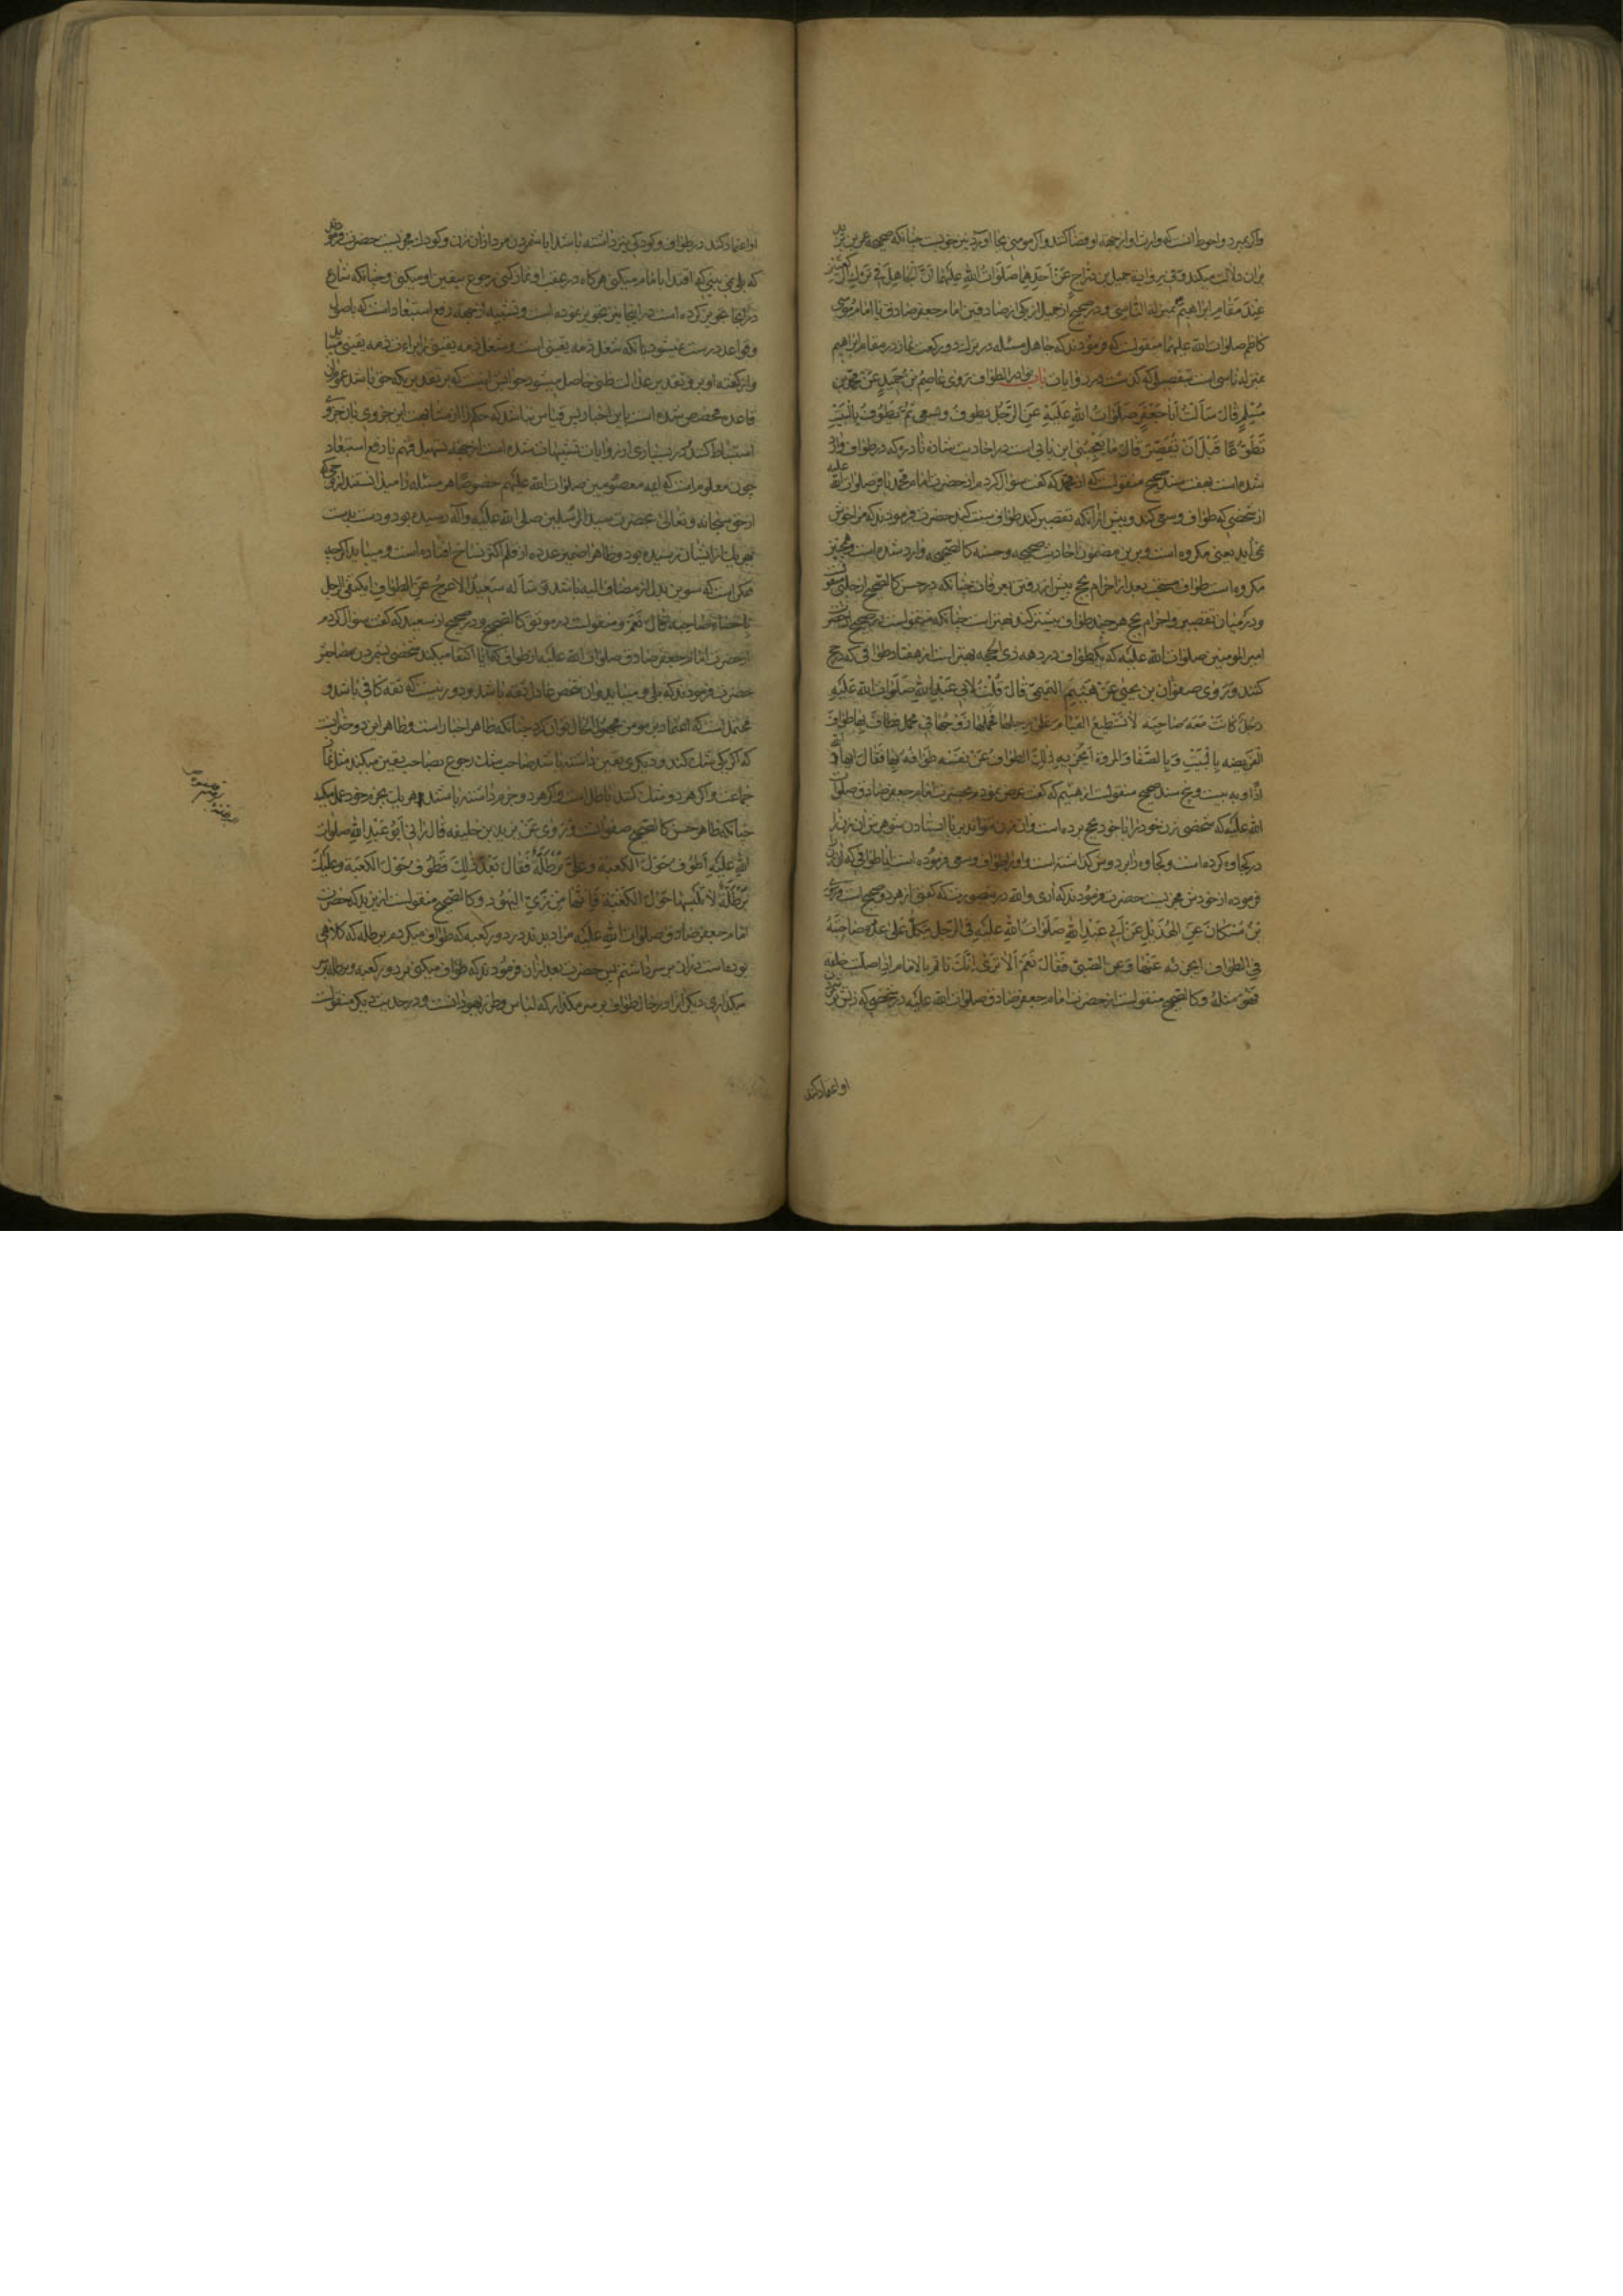 واکر بمیرد واحوط انست که وارث او از جهة او قضا کند واکر مومنی بجا اورد نیز خوبست چنانکه صحیحه عمر بن یزید
بران دلالت میکند وفی روایة جمیل بن دراج عن احدهما صلوات الله علیهما ان الجاهل فی ترک الرکعتین
عند مقام ابراهیم بمنزلة الناسی ودر صحیح از جمیل از یکی از صادقین امام جعفر صادق یا امام موسی
کاظم صلوات الله علیهما منقولست که فرمودند که جاهل مسئله در ترک دو رکعت نماز در مقام ابراهیم
بمنزله ناسی است بتفصیلی که کذشت در روایات باب نوادر الطواف روی عاصم بن حمید عن محمد بن
مسلم قال سالت ابا جعفر صلوات الله علیه عن الرجل یطوف ویسعی ثم یطوف بالبیت
تطوعا قبل ان یقصر قال ما یعجبنی این بابی است در احادیث شاذه نادره که در طواف وارد
شده است بهفت سند صحیح منقولست که از محمد که کفت سؤال کردم از حضرت امام محمد باقر صلوات الله علیه
از شخصی که طواف وسعی کند وپیش ازانکه تقصیر کند طواف سنت کند حضرت فرمودند که مرا خوش
نمی آید یعنی مکروه است وبرین مضمون احادیث صحیحه وحسنه کالصحیحه وارد شده است وهمچنین
مکروه است طواف مستحب بعد از احرام بحج پیش از رفتن بعرفات چنانکه در حسن کالصحیح از حلبی منقولست
ودر میان تقصیر واحرام بحج هر چند طواف بیشتر کند بهتر است چنانکه منقولست در صحیح از حضرت
امیر المومنین صلوات الله علیه که یک طواف در دهه ذی الحجه بهتر است از هفتاد طوافی که در حج
کنند وروی صفوان بن یحیی عن هیثم التمیمی قال قلت لابی عبد الله صلوات الله علیه
رجل کانت معه صاحبة لا تستطیع القیام علی رجلها فحملها زوجها فی محمل فطاف بها طواف
الفریضه بالبیت وبالصفا والمروة ایجزیه ذلک الطواف عن نفسه طوافه بها فقال ایها الله
اذا وبه بیست وپنج سند صحیح منقولست از هیثم که کفت عرض نمودم بحضرت امام جعفر صادق صلوات
الله علیه که شخصی زن خود را با خود بحج برده است وان زن نمیتواند بر پا ایستادن شوهرش ان زن را
در کجاوه کرده است وکجاوه را بر دوش کذاشته است واو را طواف وسعی فرموده است ایا طوافی که ان زن را
فرموده از خودش مجزیست حضرت فرمودند که اری والله در این صورت که کفتی از هر دو صحیح است وروی
بن مسکان عن الهذیل عن ابی عبد الله صلوات الله علیه فی الرجل یتکل علی عدد صاحبته
فی الطواف ایجزئه عنها وعن الصبی فقال نعم الا تری انک تاتم بالامام اذا صلیت خلفه
فهو مثله وکالصحیح منقولست از حضرت امام جعفر صادق صلوات الله علیه در شخصی که زنش بر شمردن
او اعتماد کند
او اعتماد کند در طواف وکودکی نیز داشته باشد ایا شمردن مرد ازان زن وکودک مجزیست حضرت فرمودند
که بلی نمی بینی که اقتدا بامام میکنی هرکاه در عقب او نماز کنی رجوع بیقین او میکنی وچنانکه شارع
در آنجا تجویز کرده است در اینجا نیز تجویز نموده است وتشبیه از جهة رفع استبعاد است که باصول
وقواعد درست نمیشود بانکه شغل ذمه یقینی است وشغل ذمه یقینی را براءت ذمه یقینی میباید
واز کفته او بر تقدیر عدالت ظنی حاصل میشود جوابش اینست که بر تقدیری که حق باشد عموم ان
قاعده مخصص شده است باین اخبار پس قیاس نباشد که حکم را از مشابهت این جزوی بان جزوی
استنباط کنند ودر بسیاری از روایات تشبیهات شده است از جهة تسهیل فهم یا رفع استبعاد
چون معلومست که ایمه معصومین صلوات الله علیهم خصوصا هر مسئله را میدانستند از وحی که
از حق سبحانه وتعالی بحضرت سید المرسلین صلی الله علیه وآله رسیده بود ودست بدست
بهر یک از ایشان رسیده بود وظاهرا ضمیر عدده از قلم اکثر نساخ افتاده است ومیباید اکرچه
ممکن است که تنوین بدل از مضاف الیه باشد وساله سعید الاعرج عن الطواف ایکتفی الرجل
باحصاء صاحبه فقال نعم ومنقولست در موثق کالصحیح ودر صحیح از سعید که کفت سوال کردم
از حضرت امام جعفر صادق صلوات الله علیه از طواف که ایا اکتفا میکند شخصی بشمردن مصاحبش
حضرت فرمودند که بلی ومیباید وان شخص عادل ثقه باشد ودور نیست که ثقه کافی باشد و
محتمل است که اعتماد بر مومن مجهول الحال توان کرد چنانکه ظاهر اخبار است وظاهر این دو خبر اینست
که اکر یکی شک کند ودیکری یقین داشته باشد صاحب شک رجوع بصاحب یقین میکند مثل نماز
جماعت واکر هر دو شک کنند باطل است واکر هر دو جزم داشته باشند هر یک بجزم خود عمل میکند
چنانکه ظاهر حسن کالصحیح صفوانست وروی عن یزید بن خلیفه قال رانی ابو عبد الله صلوات
الله علیه اطوف حول الکعبة وعلی برطلة فقال بعد ذلک تطوف حول الکعبة وعلیک
برطلة لا تلبسها حول الکعبة فانها من زی الیهود وکالصحیح منقولست از یزید که حضرت
امام جعفر صادق صلوات الله علیه مرا دیدند در دور کعبه که طواف میکردم برطله که کلاهی
بوده است دراز بر سر داشتم پس حضرت بعد ازان فرمودند که طواف میکنی بر دور کعبه وبرطله بر سر
میکذاری دیکر انرا در حال طواف بر سر مکذار که لباس وطرز یهودانست ودر حدیث دیکر منقولست